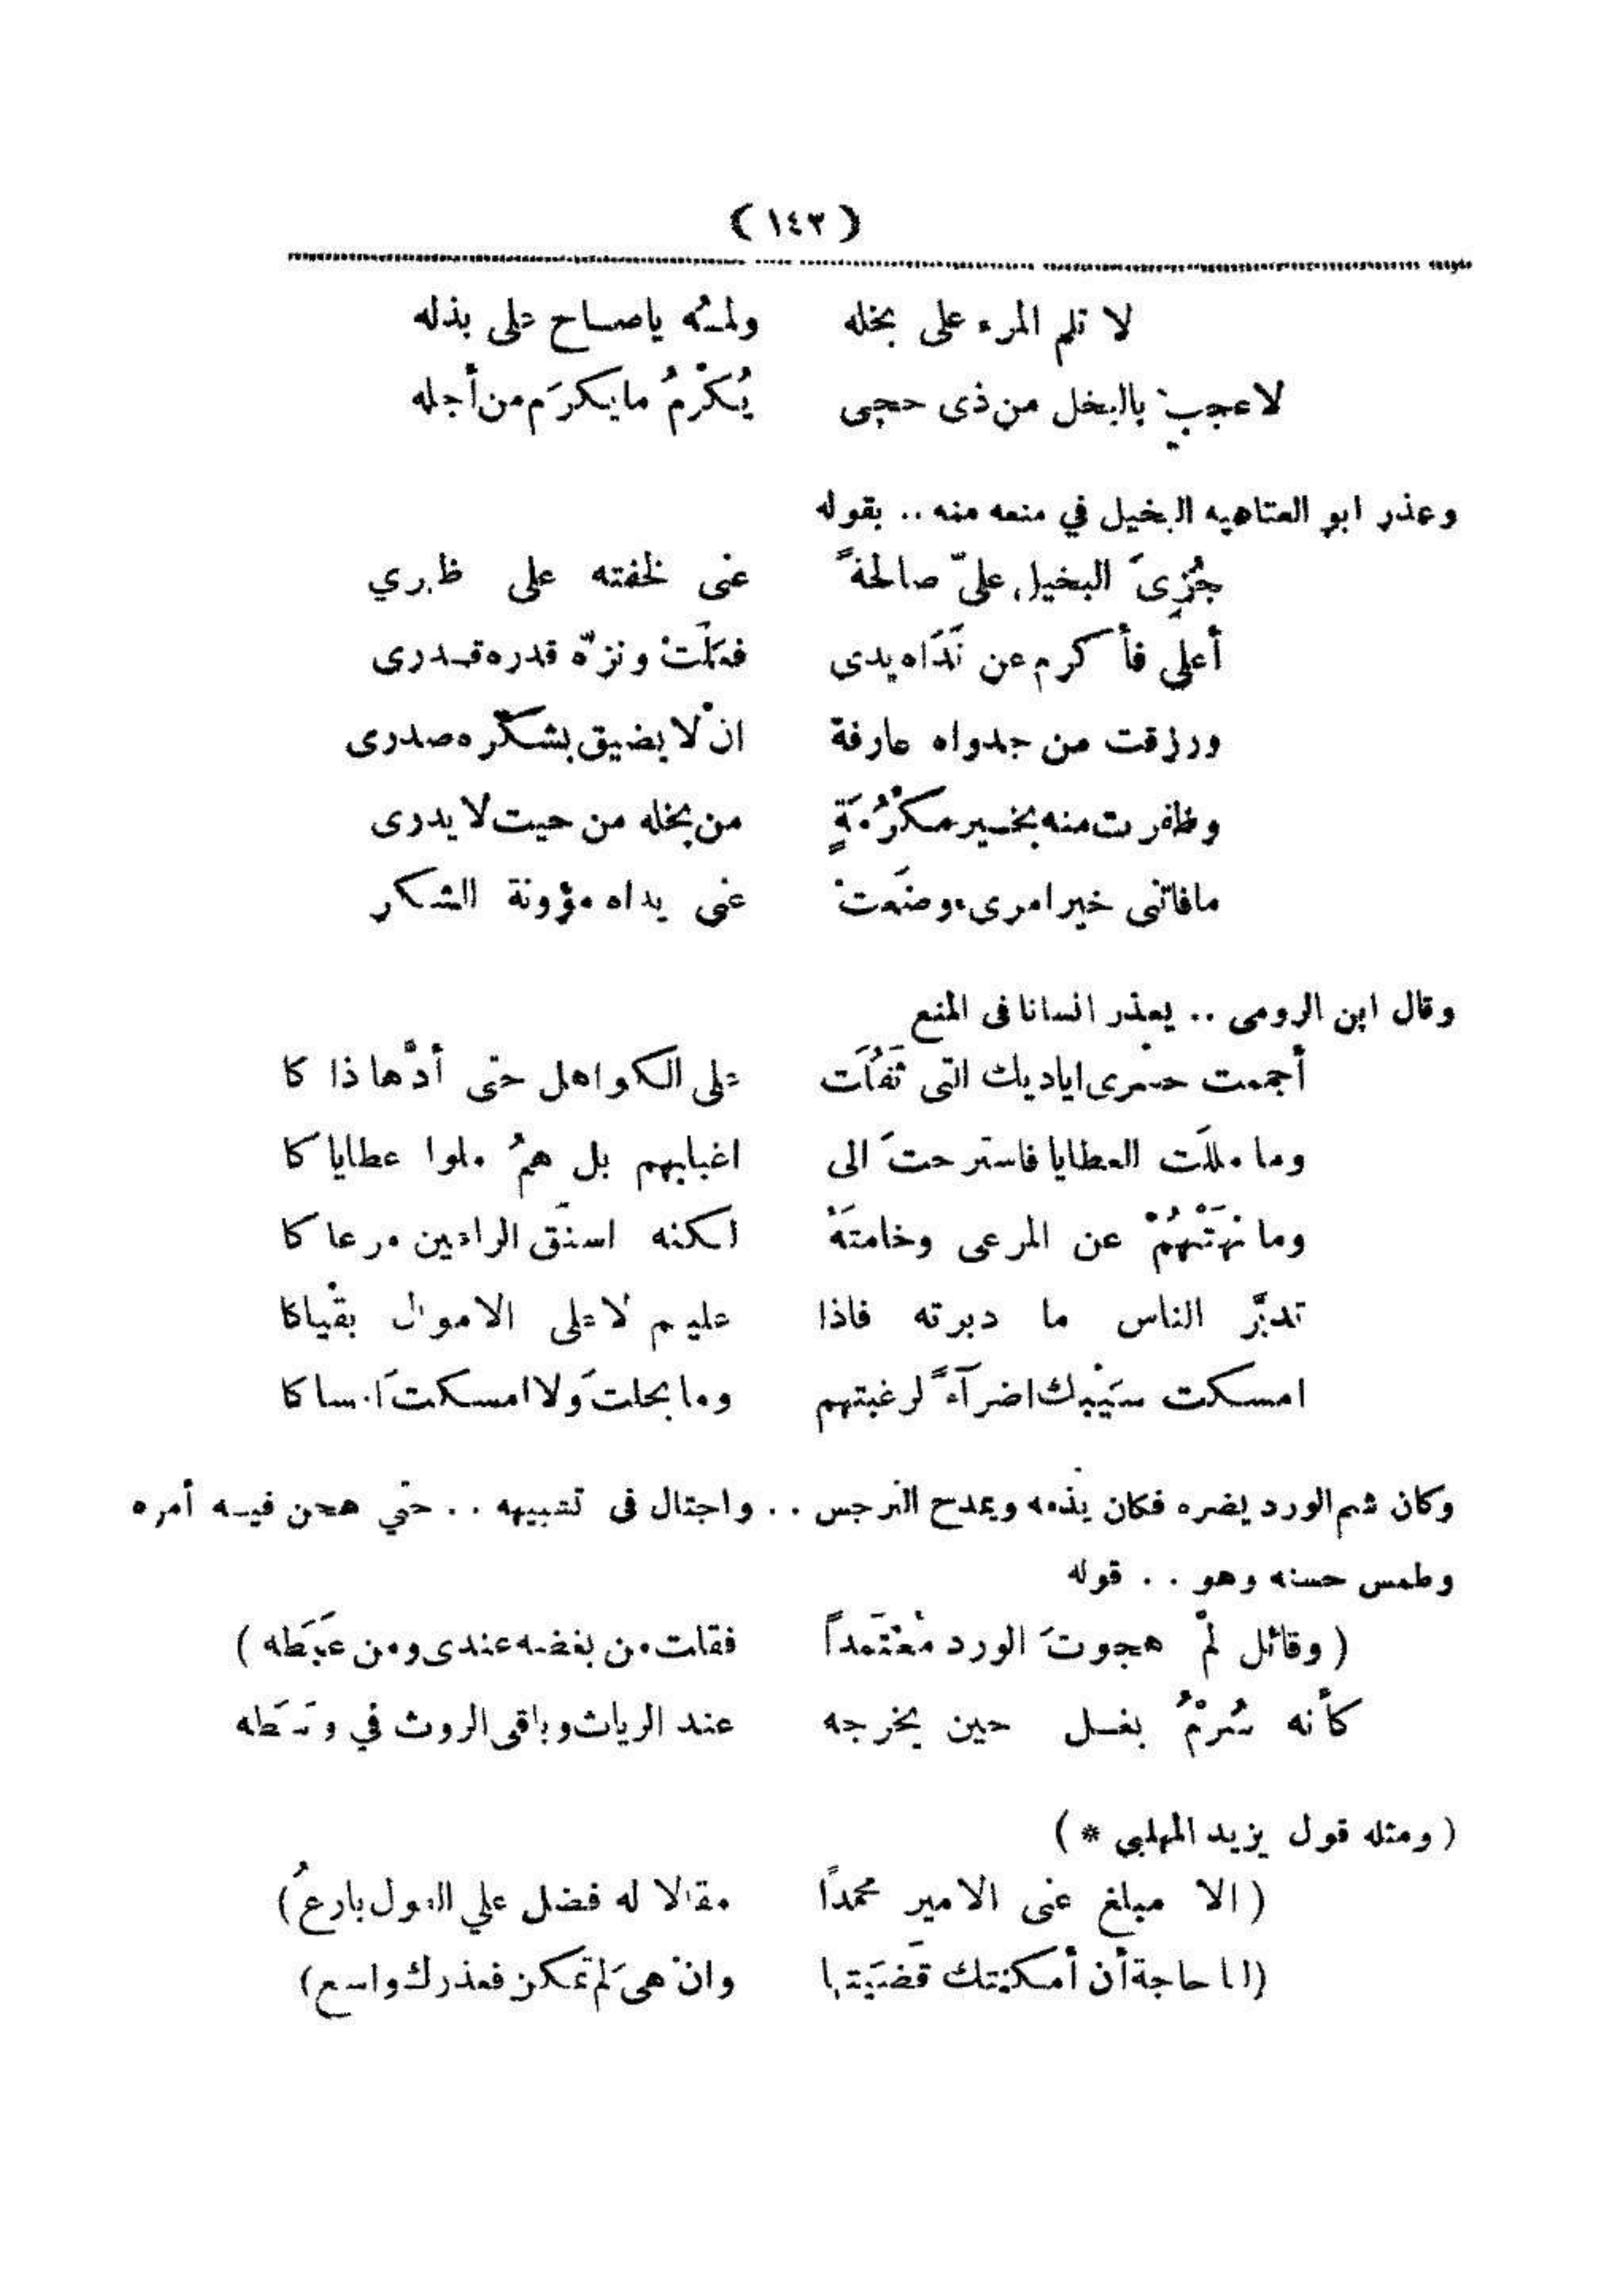 ( ١٤٣ )
لا تلم المرء على بخله ولمـْه ياصـاح على بذله
لاعجب بالبخل من ذى حجى يُكْرمُ مايكرَم من أجله
وعذر ابو العتاهيه البخيل في منعه منه .. بقوله
جُزىَ البخيل علىّ صالحةً عنى لخفته على ظهري
أعلى فأكرم عن نَدَاه يدى فعَلَتْ ونزّه قدره قـدرى
ورزقت من جدواه عارفة انْ لايضيق بشكْره صدرى
وظفرت منه بخـير مكْرُمَةٍ من بخله من حيث لا يدرى
مافاتنى خير امرىء وضَعتْ عنى يداه مؤونة الشكر
وقال ابن الرومى .. يعذر انسانا فى المنع
أجممت حسْرى اياديك التى ثَقُلَت على الكواهل حتى أدّها ذا كا
وما مللَت العطايا فاسترحتَ الى اغبابهم بل همُ ملوا عطايا كا
وما نَهَتْهُمْ عن المرعى وخامتَهُ لكنه اسنَق الراعين مرعا كا
تدبَّر الناس ما دبرته فاذا عليهم لا على الاموال بقْياكا
امسكت سَيْبك اضرآءً لرغبتهم وما بخلتَ ولا امسكتَ امسا كا
وكان شم الورد يضره فكان يذمه ويمدح النرجس .. واحتال فى تشبيهه .. حتي هجن فيـه أمره
وطمس حسنه وهو .. قوله
( وقائل لمْ هجوتَ الورد مُعْتَمداً فقلت من بغضه عندى ومن عَبَطه )
كأنه سُرْمُ بغـل حين يخرجه عند الرياث وباقى الروث في وَسَطه
( ومثله قول يزيد المهلبي * )
( الا مبلغ عنى الامير محمداً مقالا له فضل علي القول بارعُ)
(لنا حاجة أن أمكنتك قضَيتها وانْ هىَ لم تمكن فعذرك واسع)